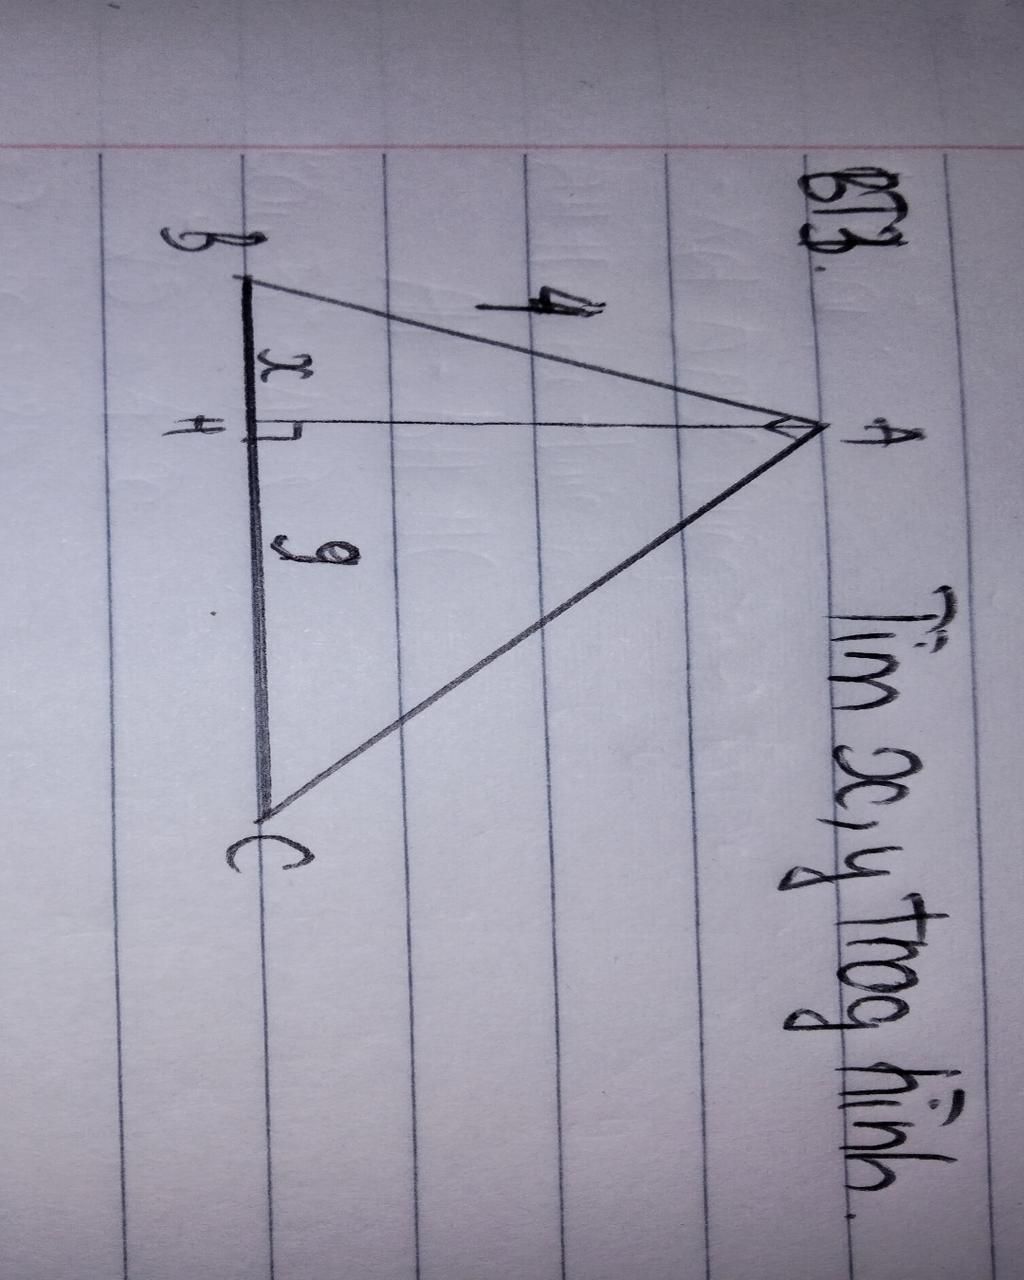 BT3. Tìm x, y trog hình.
A
4
x
9
B
H
C